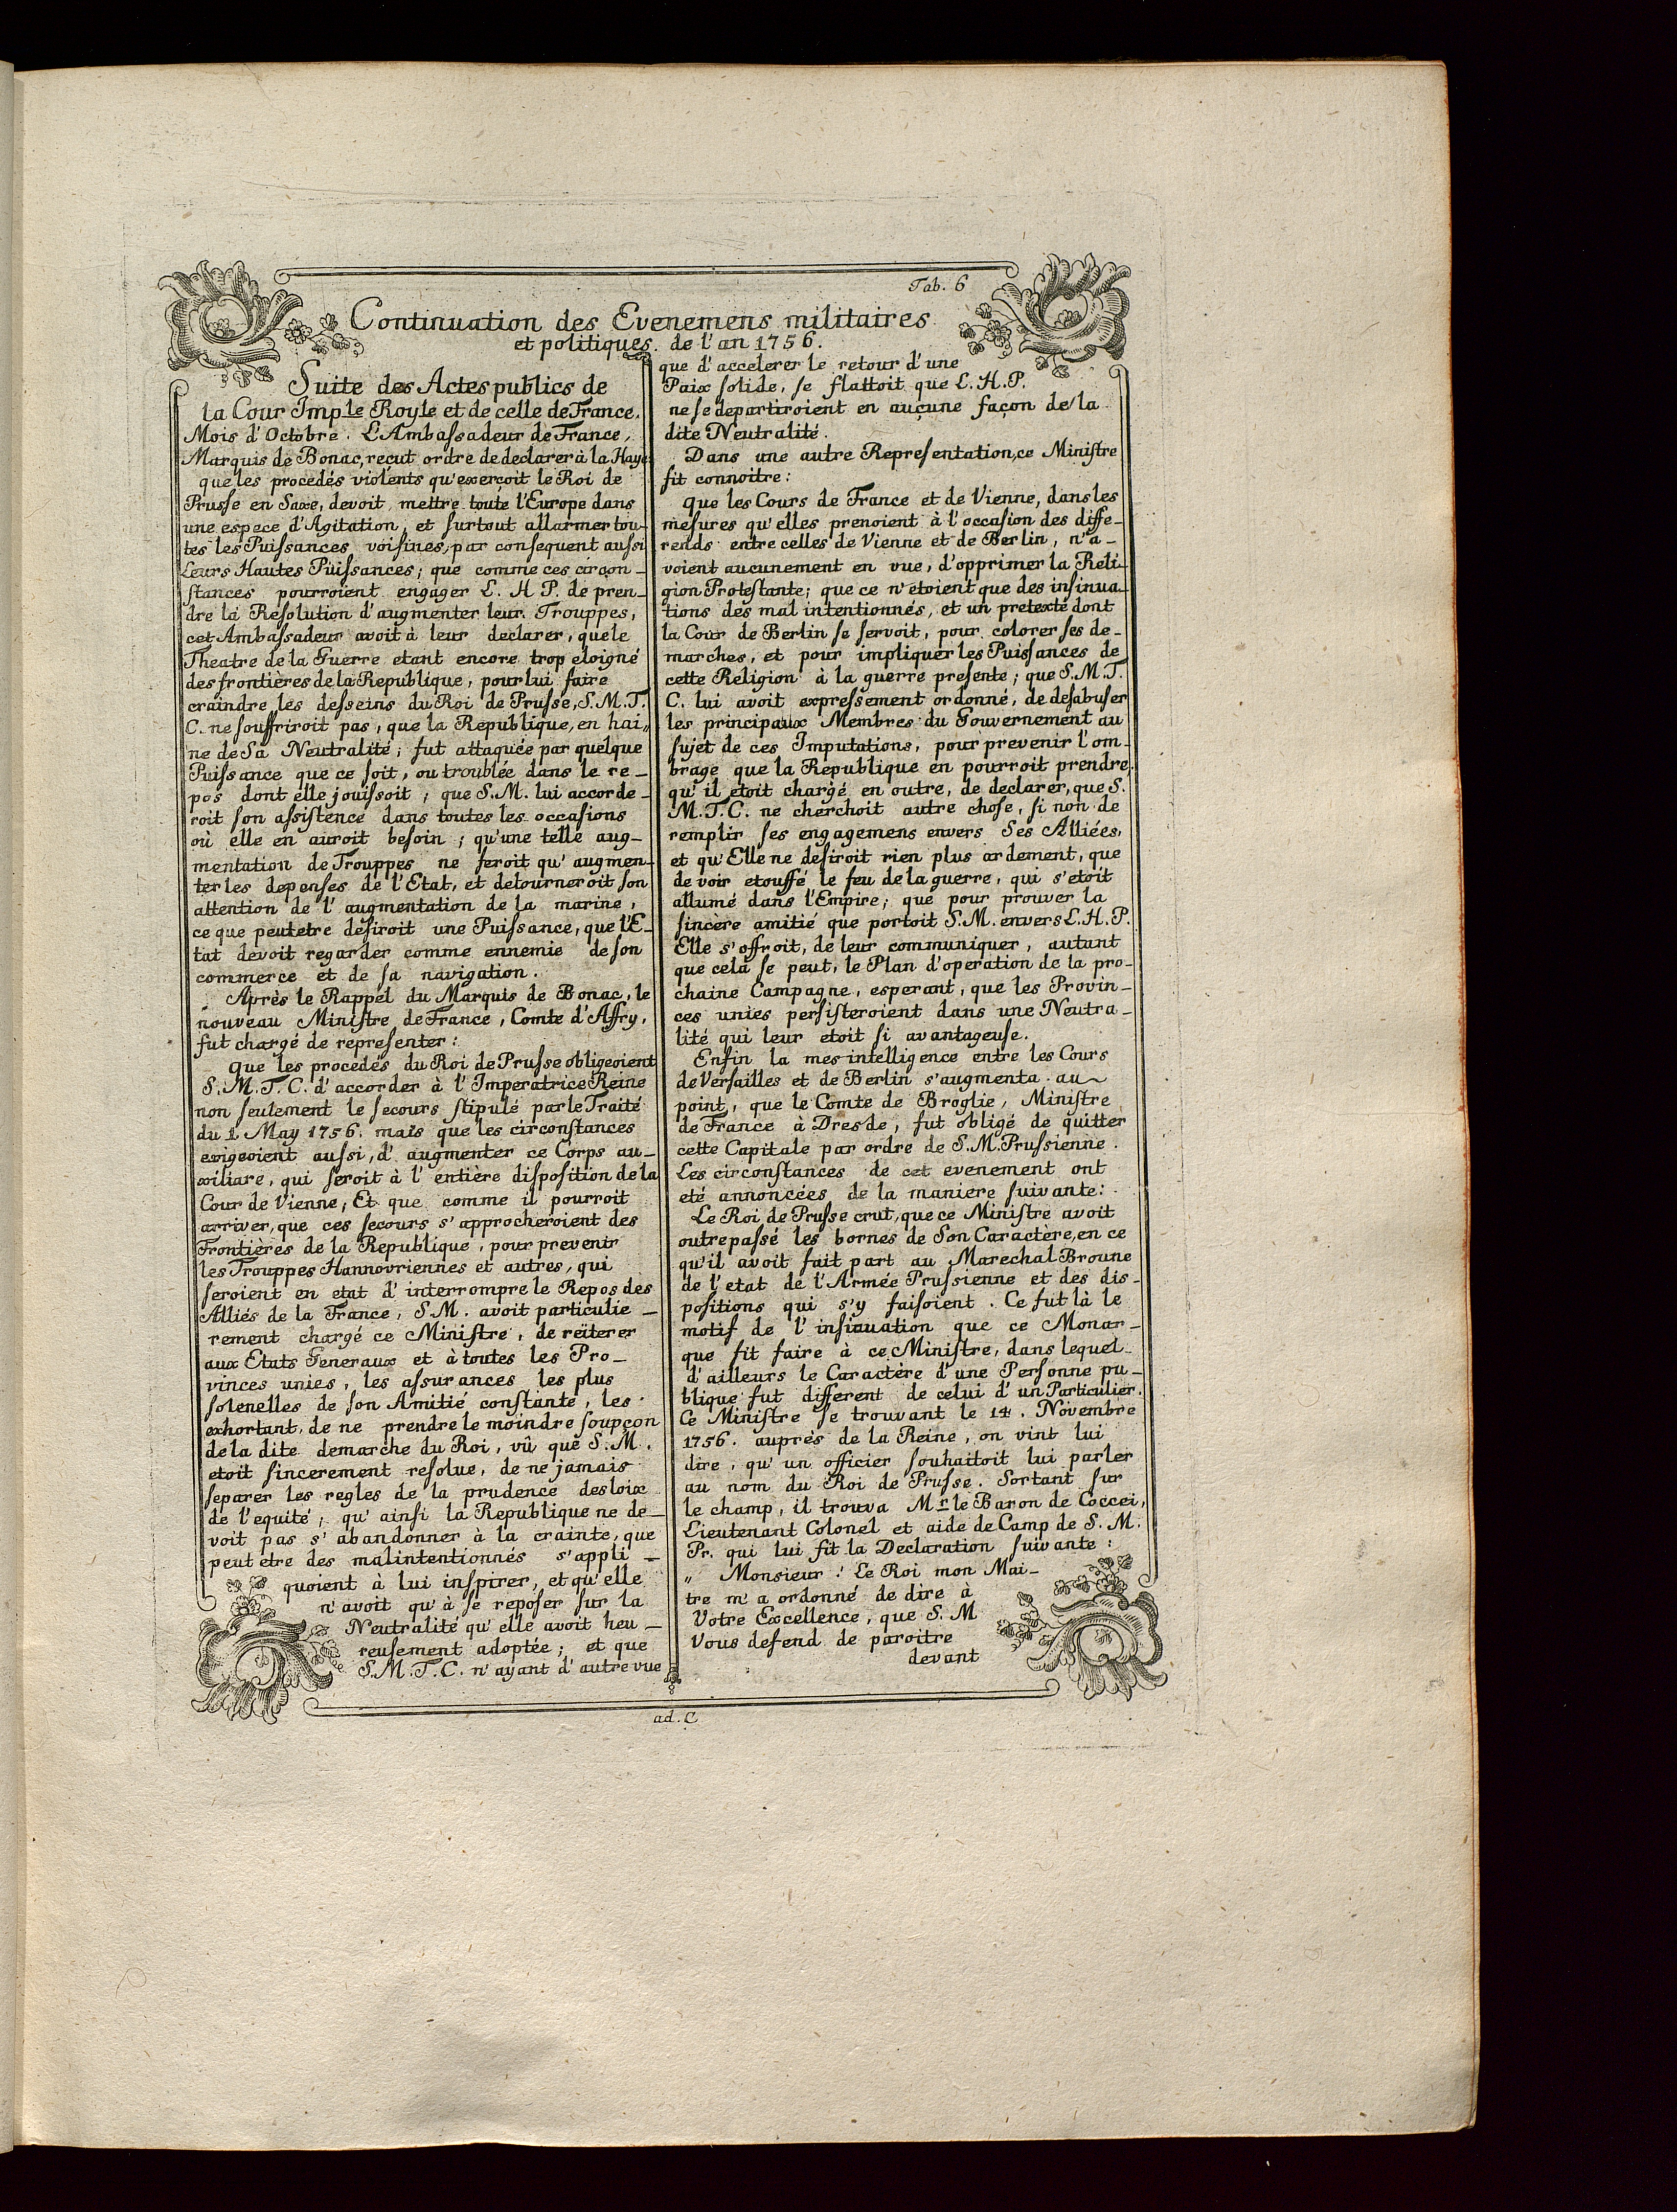 Tab. 6
Continuation des Evenemens militaires
et politiques de l'an 1756.
Suite des Actes publics de
la Cour Imp.le Royle et de celle de France.
Mois d'Octobre. L'Ambaſsadeur de France,
Marquis de Bonac, reçut ordre de declarer à la Haye
que les procedés violents qu'exerçoit le Roi de
Prusse en Saxe, devoit mettre toute l'Europe dans
une espece d'Agitation, et ſurtout allarmer tou-
tes les Puiſsances voiſines, par consequent auſsi
Leurs Hautes Püiſsances; que comme ces circon-
ſtances pourroient engager L. H P. de pren-
dre la Reſolution d'augmenter leur Trouppes,
cet Ambaſsadeur avoit à leur declarer, que le
Theatre de la Guerre etant encore trop eloigné
des frontières de la Republique, pour lui faire
craindre les desseins du Roi de Prusse, S.M.T.
C. ne ſouffriroit pas, que la Republique, en hai„
ne de Sa Neutralité; fut attaquée par quelque
Puiſsance que ce ſoit, ou troublée dans le re-
pos dont elle jouiſsoit; que S.M. lui accorde-
roit ſon aſsiſtence dans toutes les occasions
où elle en auroit beſoin; qu'une telle aug-
mentation de Trouppes ne feroit qu'augmen-
ter les depenſes de l'Etat, et detourneroit ſon
attention de l'augmentation de la marine,
ce que peutetre déſiroit une Puiſsance, que l'E-
tat devoit regarder comme ennemie de ſon
commerce et de ſa navigation.
Après le Rappel du Marquis de Bonac, le
nouveau Miniſtre de France, Comte d'Affry,
fut chargé de repreſenter:
que les procedés du Roi de Prusse obligeoient
S.M.T.C. d'accorder à l'Imperatrice Reine
non ſeulement le ſecours ſtipulé par le Traité
du 1. May 1756. mais que les circonſtances
exigeoient aussi, d'augmenter ce Corps au-
xiliare, qui ſeroit à l'entière diſpoſition de la
Cour de Vienne; Et que comme il pourroit
arriver, que ces ſecours s'approcheroient des
Frontières de la Republique, pour prevenir
les Trouppes Hannovriennes et autres, qui
ſeroient en etat d'interrompre le Repos des
Alliés de la France, S.M. avoit particulie-
rement chargé ce Miniſtre, de reïterer
aux Etats Generaux et à toutes les Pro-
vinces unies, les aſsurances les plus
ſolenelles de ſon Amitié conſtante, les
exhortant, de ne prendre le moindre ſoupçon
de la dite demarche du Roi, vû que S.M.
etoit ſincerement reſolue, de ne jamais
ſeparer les regles de la prudence des loix
de l'equité; qu'ainſi la Republique ne de-
voit pas s'abandonner à la crainte, que
peut etre des malintentionnés s'appli-
quoient à lui inſpirer, et qu'elle
n'avoit qu'à ſe repoſer ſur la
Neutralité qu'elle avoit heu-
reuſement adoptée; et que
S.M.T.C. n'ayant d'autre vue
que d'accelerer le retour d'une
Paix ſolide, ſe flattoit que L.H.P.
ne ſe departiroient en aucune façon de la
dite Neutralité.
Dans une autre Repreſentation, ce Miniſtre
fit connoitre:
que les Cours de France et de Vienne, dans les
mesures qu'elles prenoient à l'occaſion des diffe-
rends entre celles de Vienne et de Berlin, n'a-
voient aucunement en vue, d'opprimer la Reli-
gion Proteſtante; que ce n'etoient que des inſinua-
tions des mal intentionnés, et un pretexte dont
la Cour de Berlin ſe ſervoit, pour colorer ſes de-
marches, et pour impliquer les Puiſsances de
cette Religion à la guerre preſente; que S.M.T.
C. lui avoit expreſsement ordonné, de desabuſer
les principaux Membres du Gouvernement au
ſujet de ces Imputations, pour prevenir l'om-
brage que la Republique en pourroit prendre;
qu'il etoit chargé en outre, de declarer, que S.
M.T.C. ne cherchoit autre choſe, ſi non de
remplir ſes engagemens envers Ses Alliées,
et qu'Elle ne deſiroit rien plus ardement, que
de voir etouffé le feu de la guerre, qui s'etoit
allumé dans l'Empire; que pour prouver la
ſincère amitié que portoit S.M. envers L.H.P.
Elle s'offroit, de leur communiquer, autant
que cela ſe peut, le Plan d'operation de la pro-
chaine Campagne, esperant, que les Provin-
ces unies perſiſteroient dans une Neutra-
lité qui leur etoit ſi avantageuſe.
Enfin la mes-intelligence entre les Cours
de Verſailles et de Berlin s'augmenta au
point, que le Comte de Broglie, Miniſtre
de France à Dresde, fut obligé de quitter
cette Capitale par ordre de S.M.Pruſsienne.
Les circonſtances de cet evenement ont
eté annoncées de la maniere ſuivante:
Le Roi de Pruſse crut, que ce Miniſtre avoit
outrepaſsé les bornes de Son Caractère, en ce
qu'il avoit fait part au Marechal Broune
de l'etat de l'Armée Pruſsienne et des dis-
poſitions qui s'y faiſoient. Ce fut là le
motif de l'inſinuation que ce Monar-
que fit faire à ce Miniſtre, dans lequel
d'ailleurs le Caractère d'une Perſonne pu-
blique fut different de celui d'un Particulier.
Ce Miniſtre ſe trouvant le 14. Novembre
1756. auprés de la Reine, on vint lui
dire, qu'un officier ſouhaitoit lui parler
au nom du Roi de Pruſse. Sortant ſur
le champ, il trouva Mr le Baron de Coccei,
Lieutenant Colonel et aide de Camp de S. M.
Pr. qui lui fit la Declaration ſuivante:
„ Monsieur! Le Roi mon Mai-
tre m'a ordonné de dire à
Votre Excellence, que S. M
Vous defend de paroitre
devant
ad. C